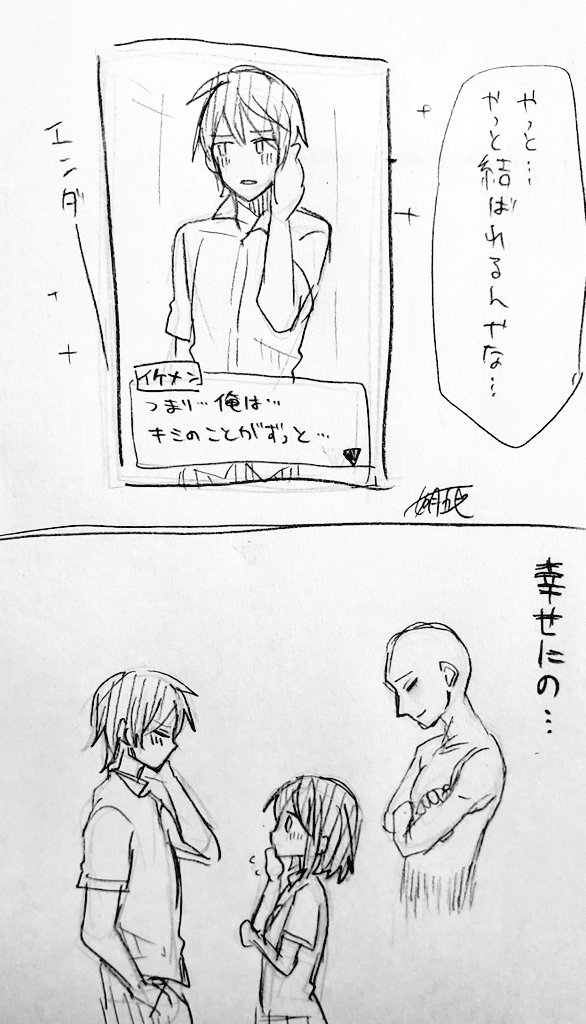 やっと…
やっと結ばれるんやな…
エンダー
イケメン
つまり…俺は…
キミのことがずっと…
幸せにの…